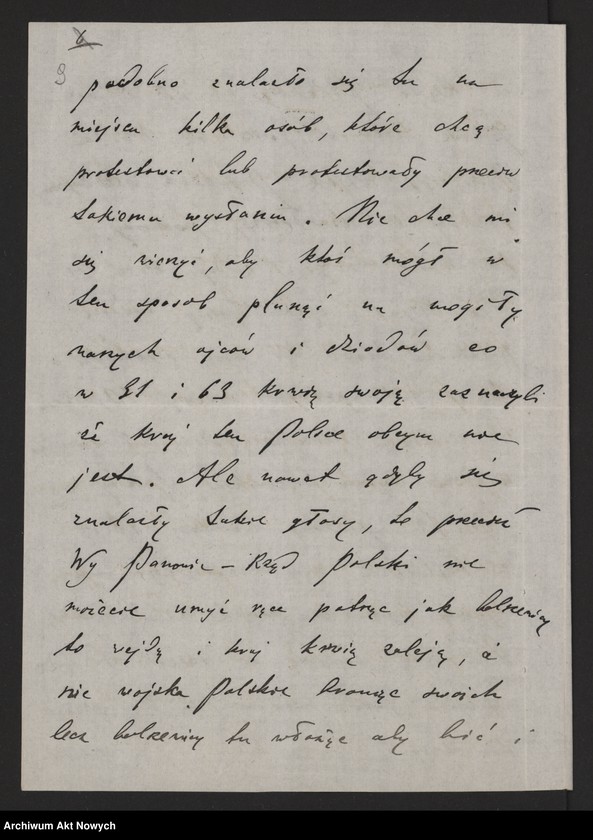 9
podobno znalazło się tu na
miejscu kilka osób, które chcą
protestować lub protestowały przeciw
takiemu wysłaniu. Nie chce mi
się wierzyć, aby ktoś mógł w
ten sposób plunąć na mogiły
naszych ojców i dziadów co
w 31 i 63 krwią swoją zaznaczyli
że kraj ten Polsce obcym nie
jest. Ale nawet gdyby się
znalazły takie głosy, to przecież
Wy Panowie – Rząd Polski nie
możecie umyć ręce patrząc jak bolszewicy
to wejdą i kraj krwią zaleją, a
nie wojska Polskie broniąc swoich
lecz bolszewicy tu wkroczą aby bić i
Archiwum Akt Nowych